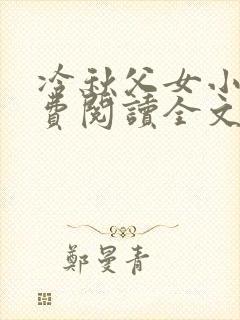 冷秋父女小
費閱讀全文
鄭曼青